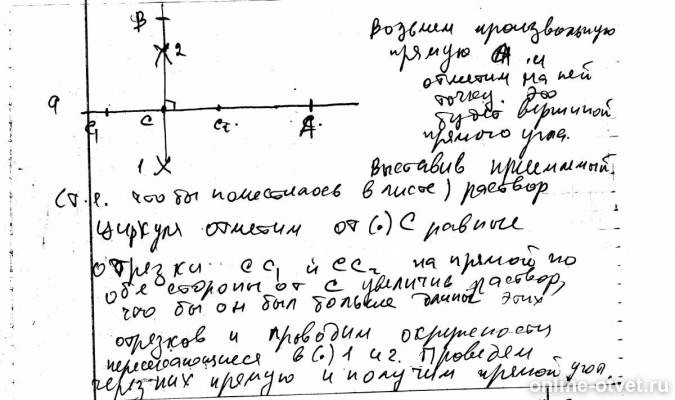 Возьмем произвольную
прямую a и
отметим на ней
точку. это
будет вершиной
прямого угла.
B
2
a
C1
C
C2
A
1
Выставив приемлемый
(т.е. что бы поместилось в листе) раствор
циркуля отметим от (.) C равные
отрезки CC1 и CC2 на прямой по
обе стороны от C увеличив раствор,
что бы он был больше длины этих
отрезков и проводим окружности
пересекающиеся в (.) 1 и 2. Проведем
через них прямую и получим прямой угол.
online-otvet.ru